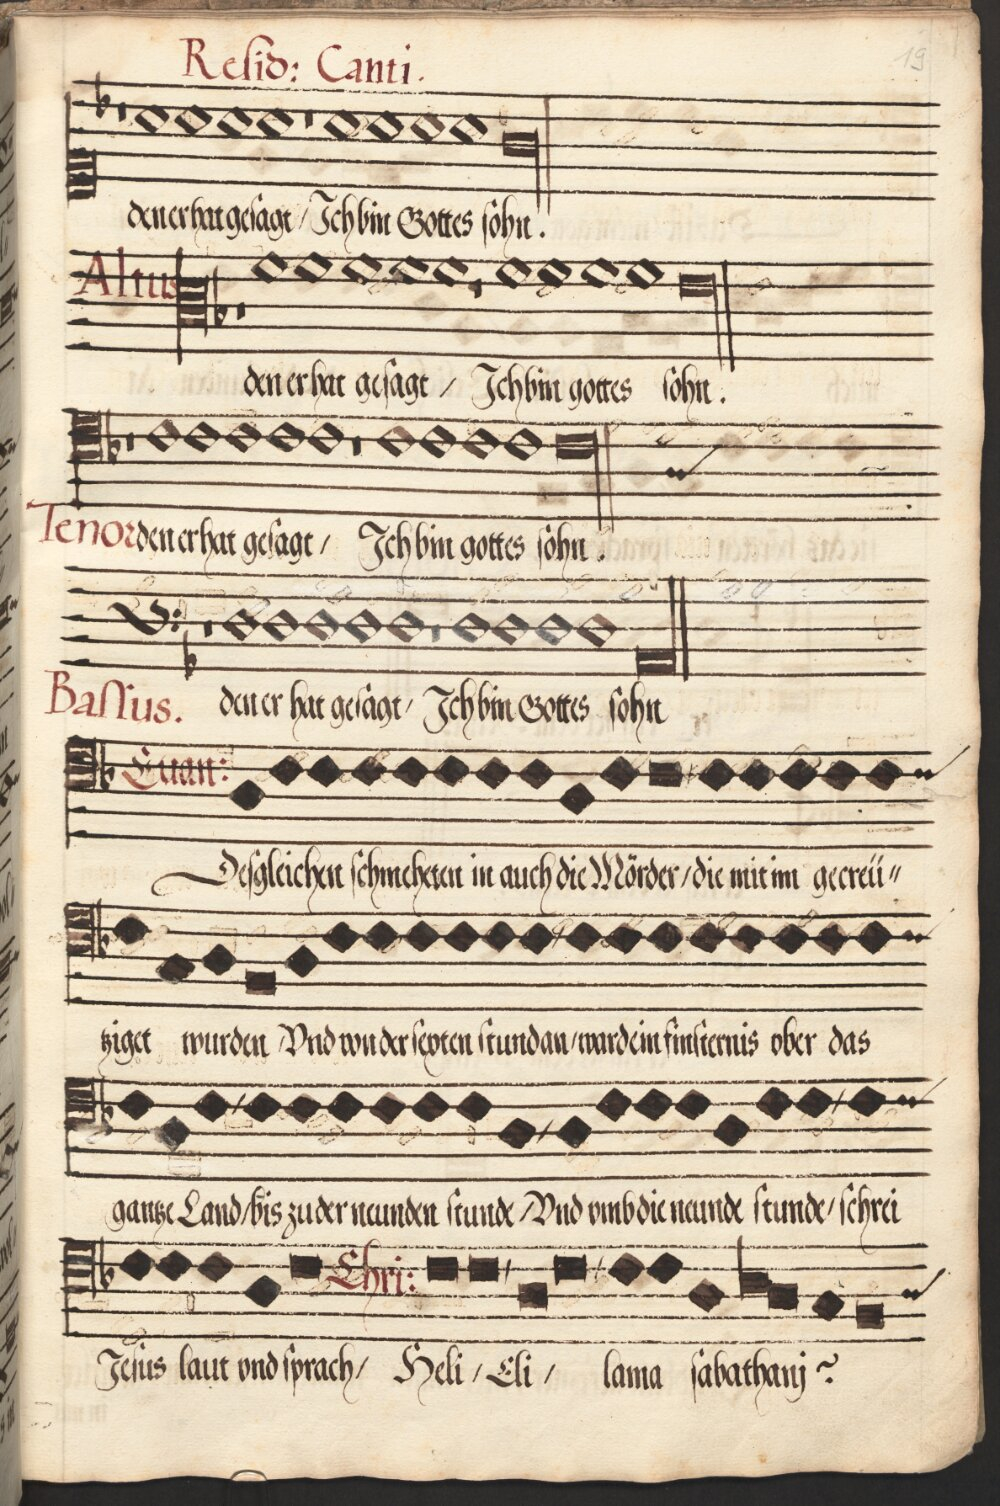 19
Resid: Canti.
den er hat gesagt / Ich bin Gottes sohn.
Altus
den er hat gesagt / Ich bin gottes sohn.
Tenor den er hat gesagt / Ich bin gottes sohn.
Bassus. den er hat gesagt / Ich bin Gottes sohn
Euan:
Desgleichen schmeheten in auch die Mörder / die mit im gecreü„
tziget wurden / Vnd von der sexten stund an / ward ein finsternis vber das
gantze Land / bis zu der neunden stunde / Vnd vmb die neunde stunde / schrei
Chri:
Jesus laut vnd sprach / Heli / Eli / lama sabathanj?